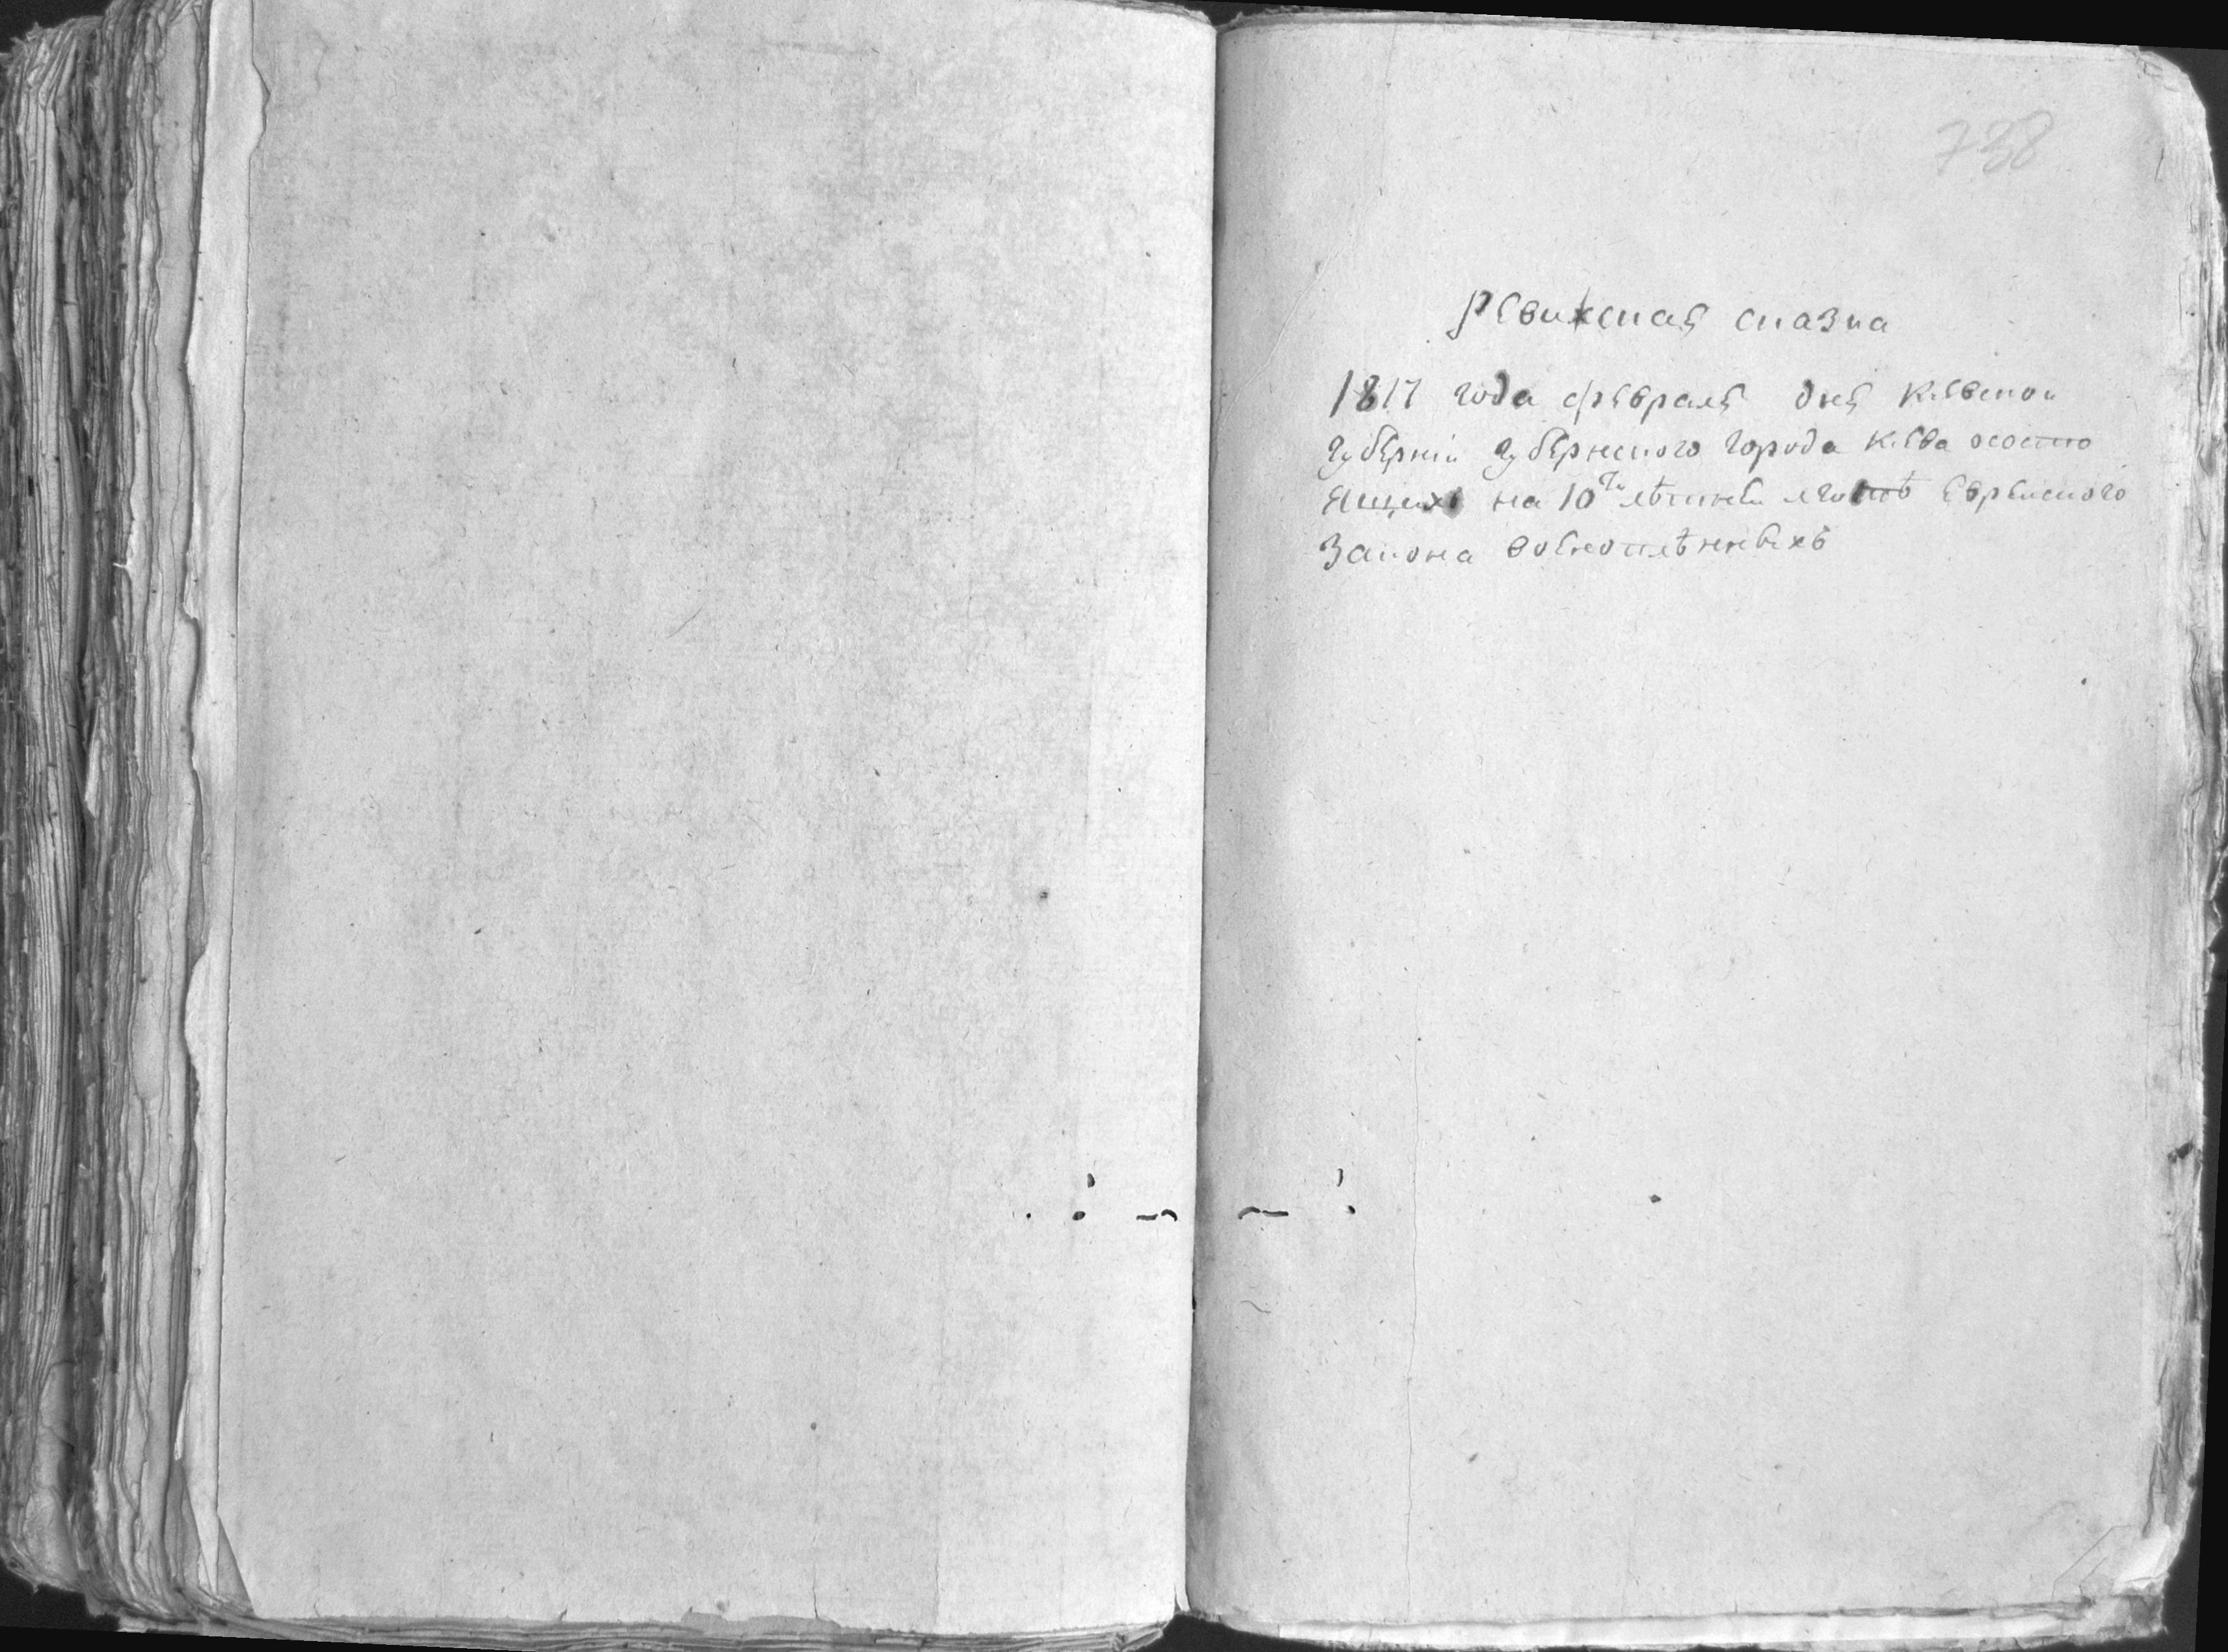 738
Ревижская сказка
1817 года февраля дня Киевской
губернiи губернского города Киева состою
ящихъ на 10ти лѣтней льготѣ Еврейского
закона военноплѣнныхъ